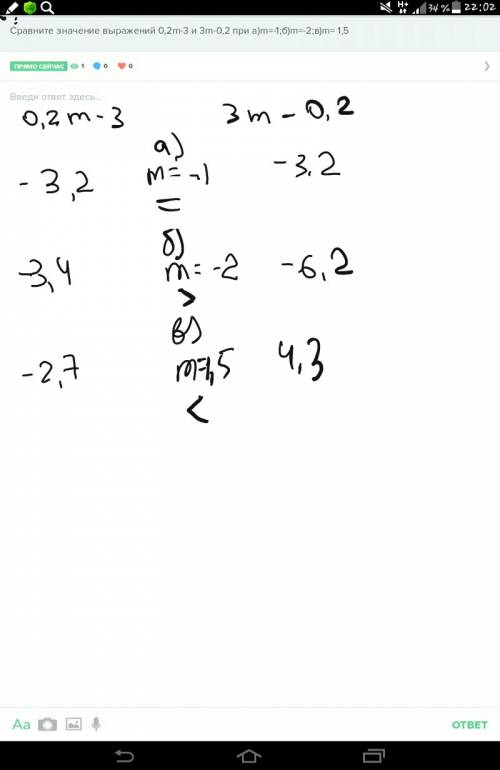 34% 22:02
Сравните значение выражений 0,2m-3 и 3m-0,2 при а)m=-1;б)m=-2;в)m= 1,5
ПРЯМО СЕЙЧАС 1 0 0
Введи ответ здесь...
0,2m-3 3m-0,2
а)
-3,2 m=-1 -3,2
=
б)
-3,4 m=-2 -6,2
>
в)
-2,7 m=1,5 4,3
<
Aa ОТВЕТ